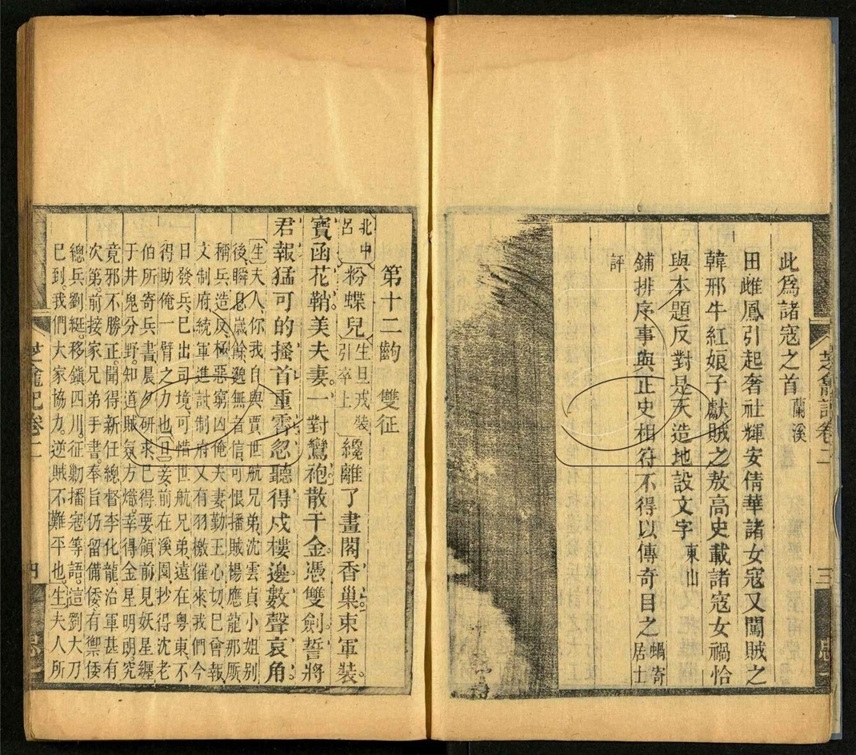 此爲諸寇之首 蘭溪
田雌鳳引起奢社輝安倩華諸女寇又闖賊之
韓邢牛紅娘子獻賊之敖高史載諸寇女禍恰
與本題反對是天造地設文字 東山
鋪排序事與正史相符不得以傳奇目之 蝸寄居士
評
芝龕記卷二
三
第十二齣 雙征
北中呂 粉蝶兒 生旦戎裝引卒上 纔離了畫閣香巢束軍裝
寶函花鞘美夫妻一對鴛袍散千金憑雙劍誓將
君報猛可的搔首重雲忽聽得戍樓邊數聲哀角
生 夫人你我自與賈世航兄弟沈雲貞小姐別
後瞬息歲餘魱無者信可恨播賊楊應龍那厮
稱兵造反極惡窮凶俺夫妻勤王心切巳曾報
文制府統軍進討制府又有羽檄催來我們今
日發兵巳出司境可惜世航兄弟遠在粤東不
得助俺一臂之力也 旦 妾前在溪園抄得沈老
伯所寄兵書晨夕硏求巳得要領前見妖星纏
于井鬼分野知道賊氣方熾幸得金星明朗究
竟邪不勝正聞得新任總督李化龍治軍甚有
次第前接家兄弟手書奉旨仍留備倭有禦倭
總兵劉綎移鎭四川征勦播寇等語這劉大刀
巳到我們大家協力逆賊不難平也 生 夫人所
芝龕記卷二